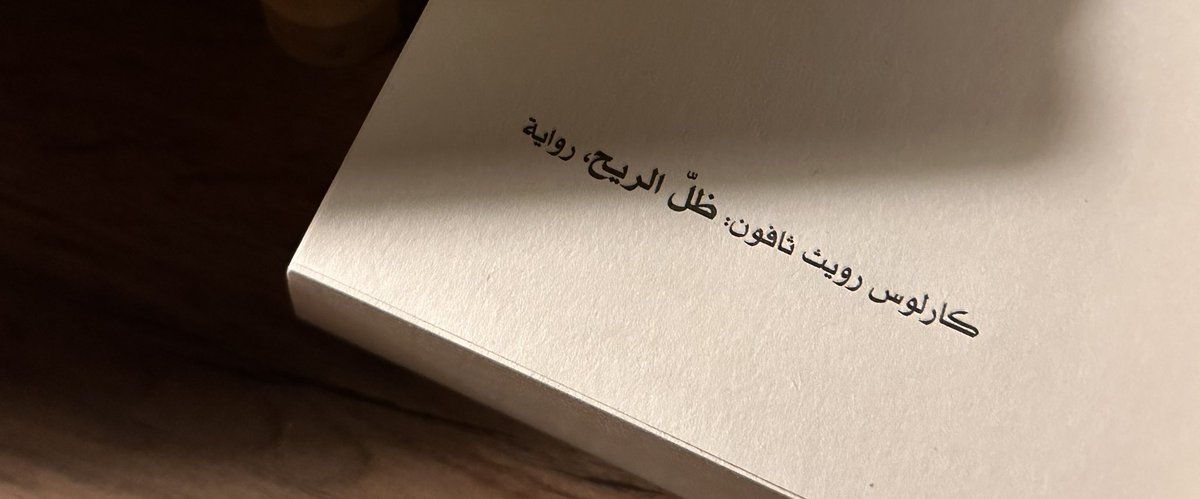 كارلوس رويث ثافون: ظلّ الريح، رواية